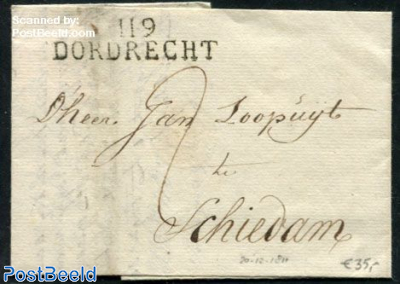 Scanned by:
PostBeeld.com
119
DORDRECHT
D'heer Jan Loopuyt
2
te
Schiedam
€35,-
PostBeeld